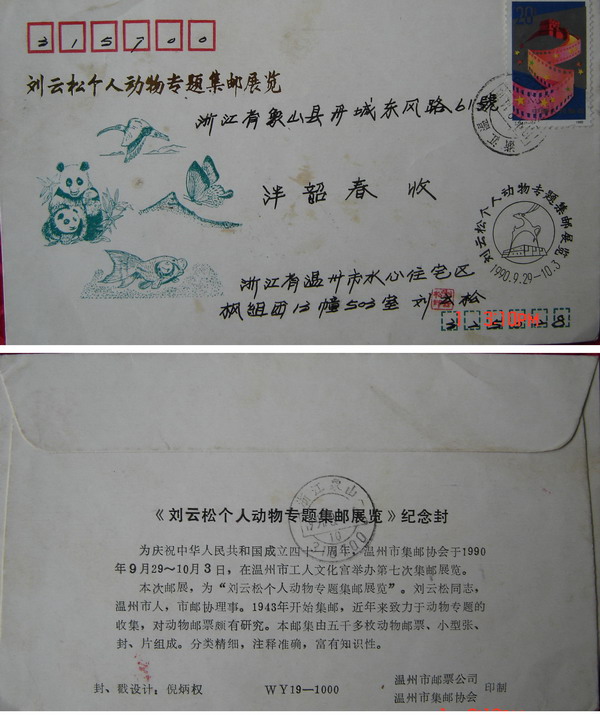 315700
刘云松个人动物专题集邮展览
浙江省象山县丹城东风路61號
洋韶春 收
浙江省温州市水心住宅区
枫组西13幢503室 刘云松
20
刘云松个人动物专题集邮展览
1990.9.29-10.3
浙江象山
《刘云松个人动物专题集邮展览》纪念封
为庆祝中华人民共和国成立四十一周年，温州市集邮协会于1990
年9月29～10月3日，在温州市工人文化宫举办第七次集邮展览。
本次邮展，为“刘云松个人动物专题集邮展览”。刘云松同志，
温州市人，市邮协理事。1943年开始集邮，近年来致力于动物专题的
收集，对动物邮票颇有研究。本邮集由五千多枚动物邮票、小型张、
封、片组成。分类精细，注释准确，富有知识性。
封、戳设计：倪炳权 WY19—1000 温州市邮票公司
温州市集邮协会 印制